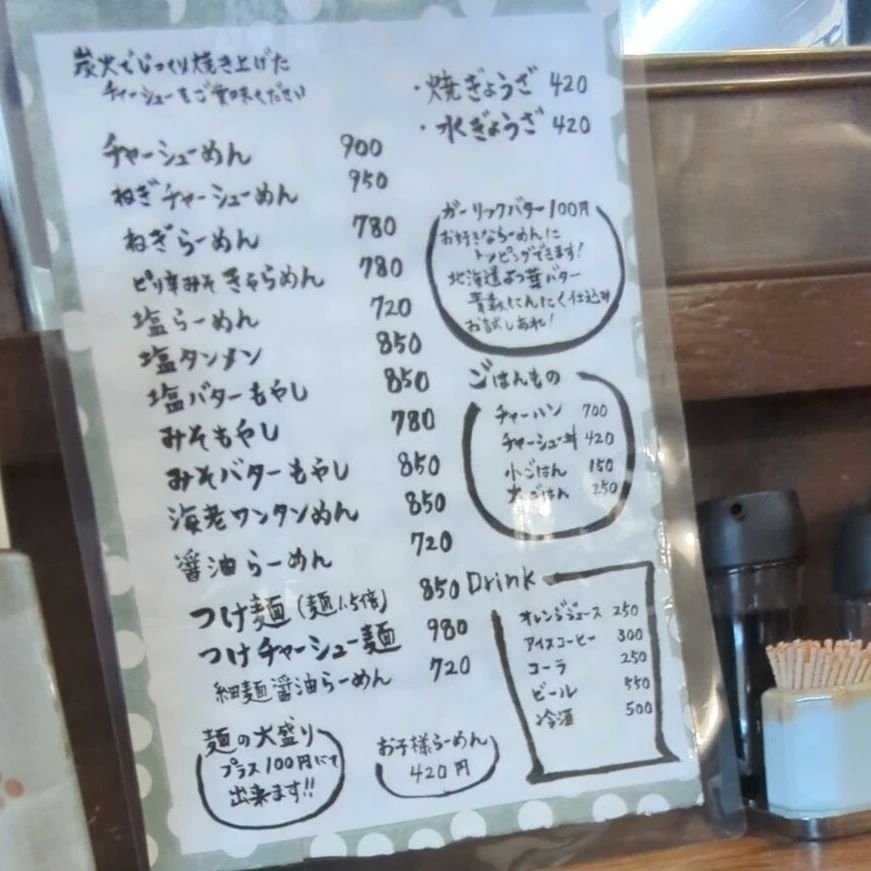 炭火でじっくり焼き上げた
チャーシューをご賞味ください
チャーシューめん 900
ねぎチャーシューめん 950
ねぎらーめん 780
ピリ辛みそきゃらめん 780
塩らーめん 720
塩タンメン 850
塩バターもやし 850
みそもやし 780
みそバターもやし 850
海老ワンタンめん 850
醤油らーめん 720
つけ麺(麺1.5倍) 850
つけチャーシュー麺 980
細麺醤油らーめん 720
麺の大盛り
プラス100円にて
出来ます!!
お子様らーめん
420円
・焼ぎょうざ 420
・水ぎょうざ 420
ガーリックバター100円
お好きならーめんに
トッピングできます!
北海道よつ葉バター
青森にんにく仕込み
お試しあれ!
ごはんもの
チャーハン 700
チャーシュー丼 420
小ごはん 150
大ごはん 250
Drink
オレンジジュース 250
アイスコーヒー 300
コーラ 250
ビール 550
冷酒 500